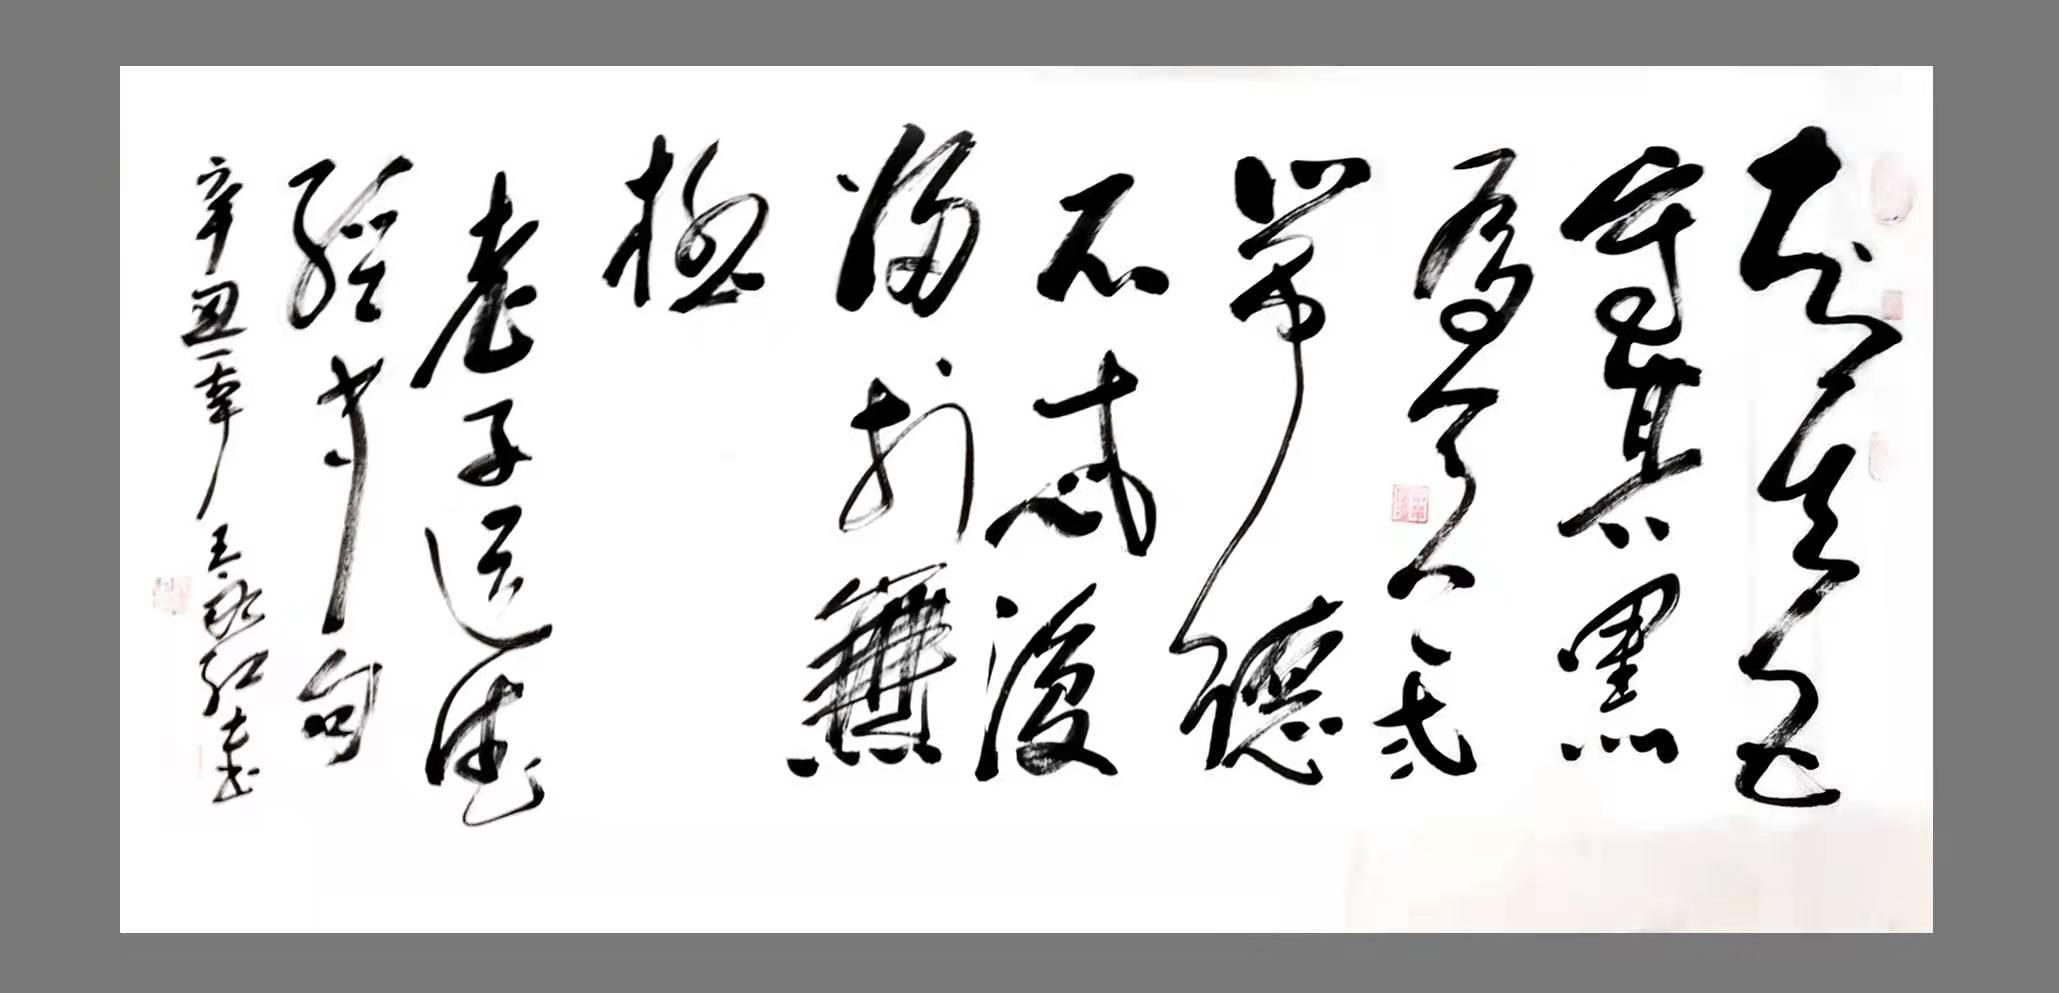 知其白
守其黑
為天下式
常德
不忒復
歸於無
極
老子道德
經章句
辛丑 王 红書